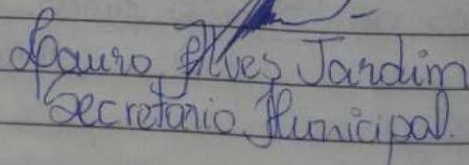 Lauro Alves Jardim
Secretario Municipal.